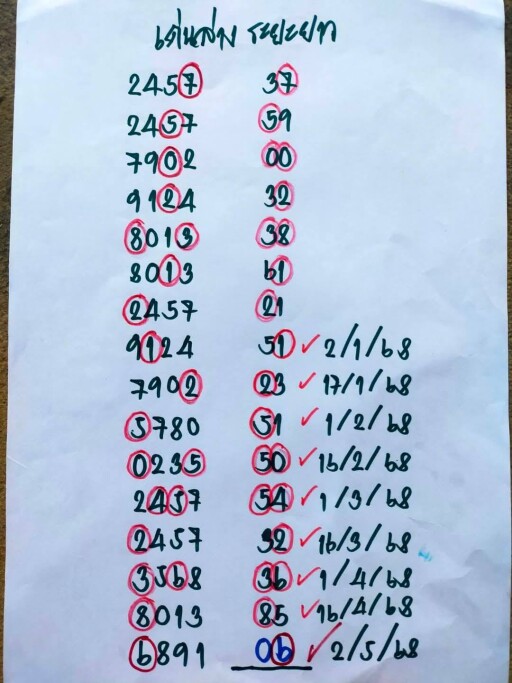 เด่นล่าง ระยะยาว
2457 37
2457 59
7902 00
9124 32
8013 38
8013 61
2457 21
9124 51 ✓ 2/1/68
7902 23 ✓ 17/1/68
5780 51 ✓ 1/2/68
0235 50 ✓ 16/2/68
2457 54 ✓ 1/3/68
2457 32 ✓ 16/3/68
3568 36 ✓ 1/4/68
8013 85 ✓ 16/4/68
6891 06 ✓ 2/5/68